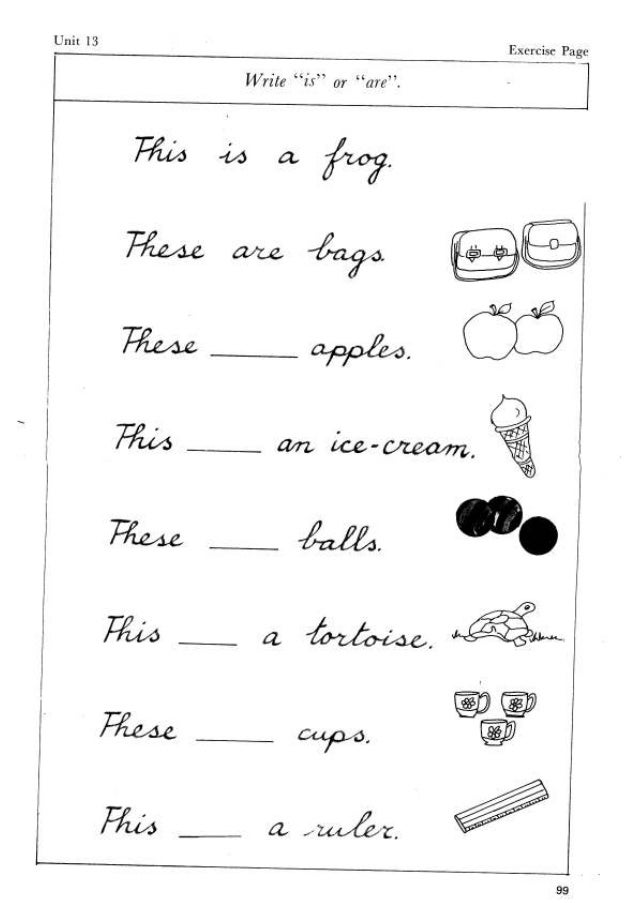 Unit 13
Exercise Page
Write “is” or “are”.
This is a frog.
These are bags.
These ______ apples.
This _____ an ice-cream.
These _____ balls.
This ____ a tortoise.
These _____ cups.
This ____ a ruler.
99